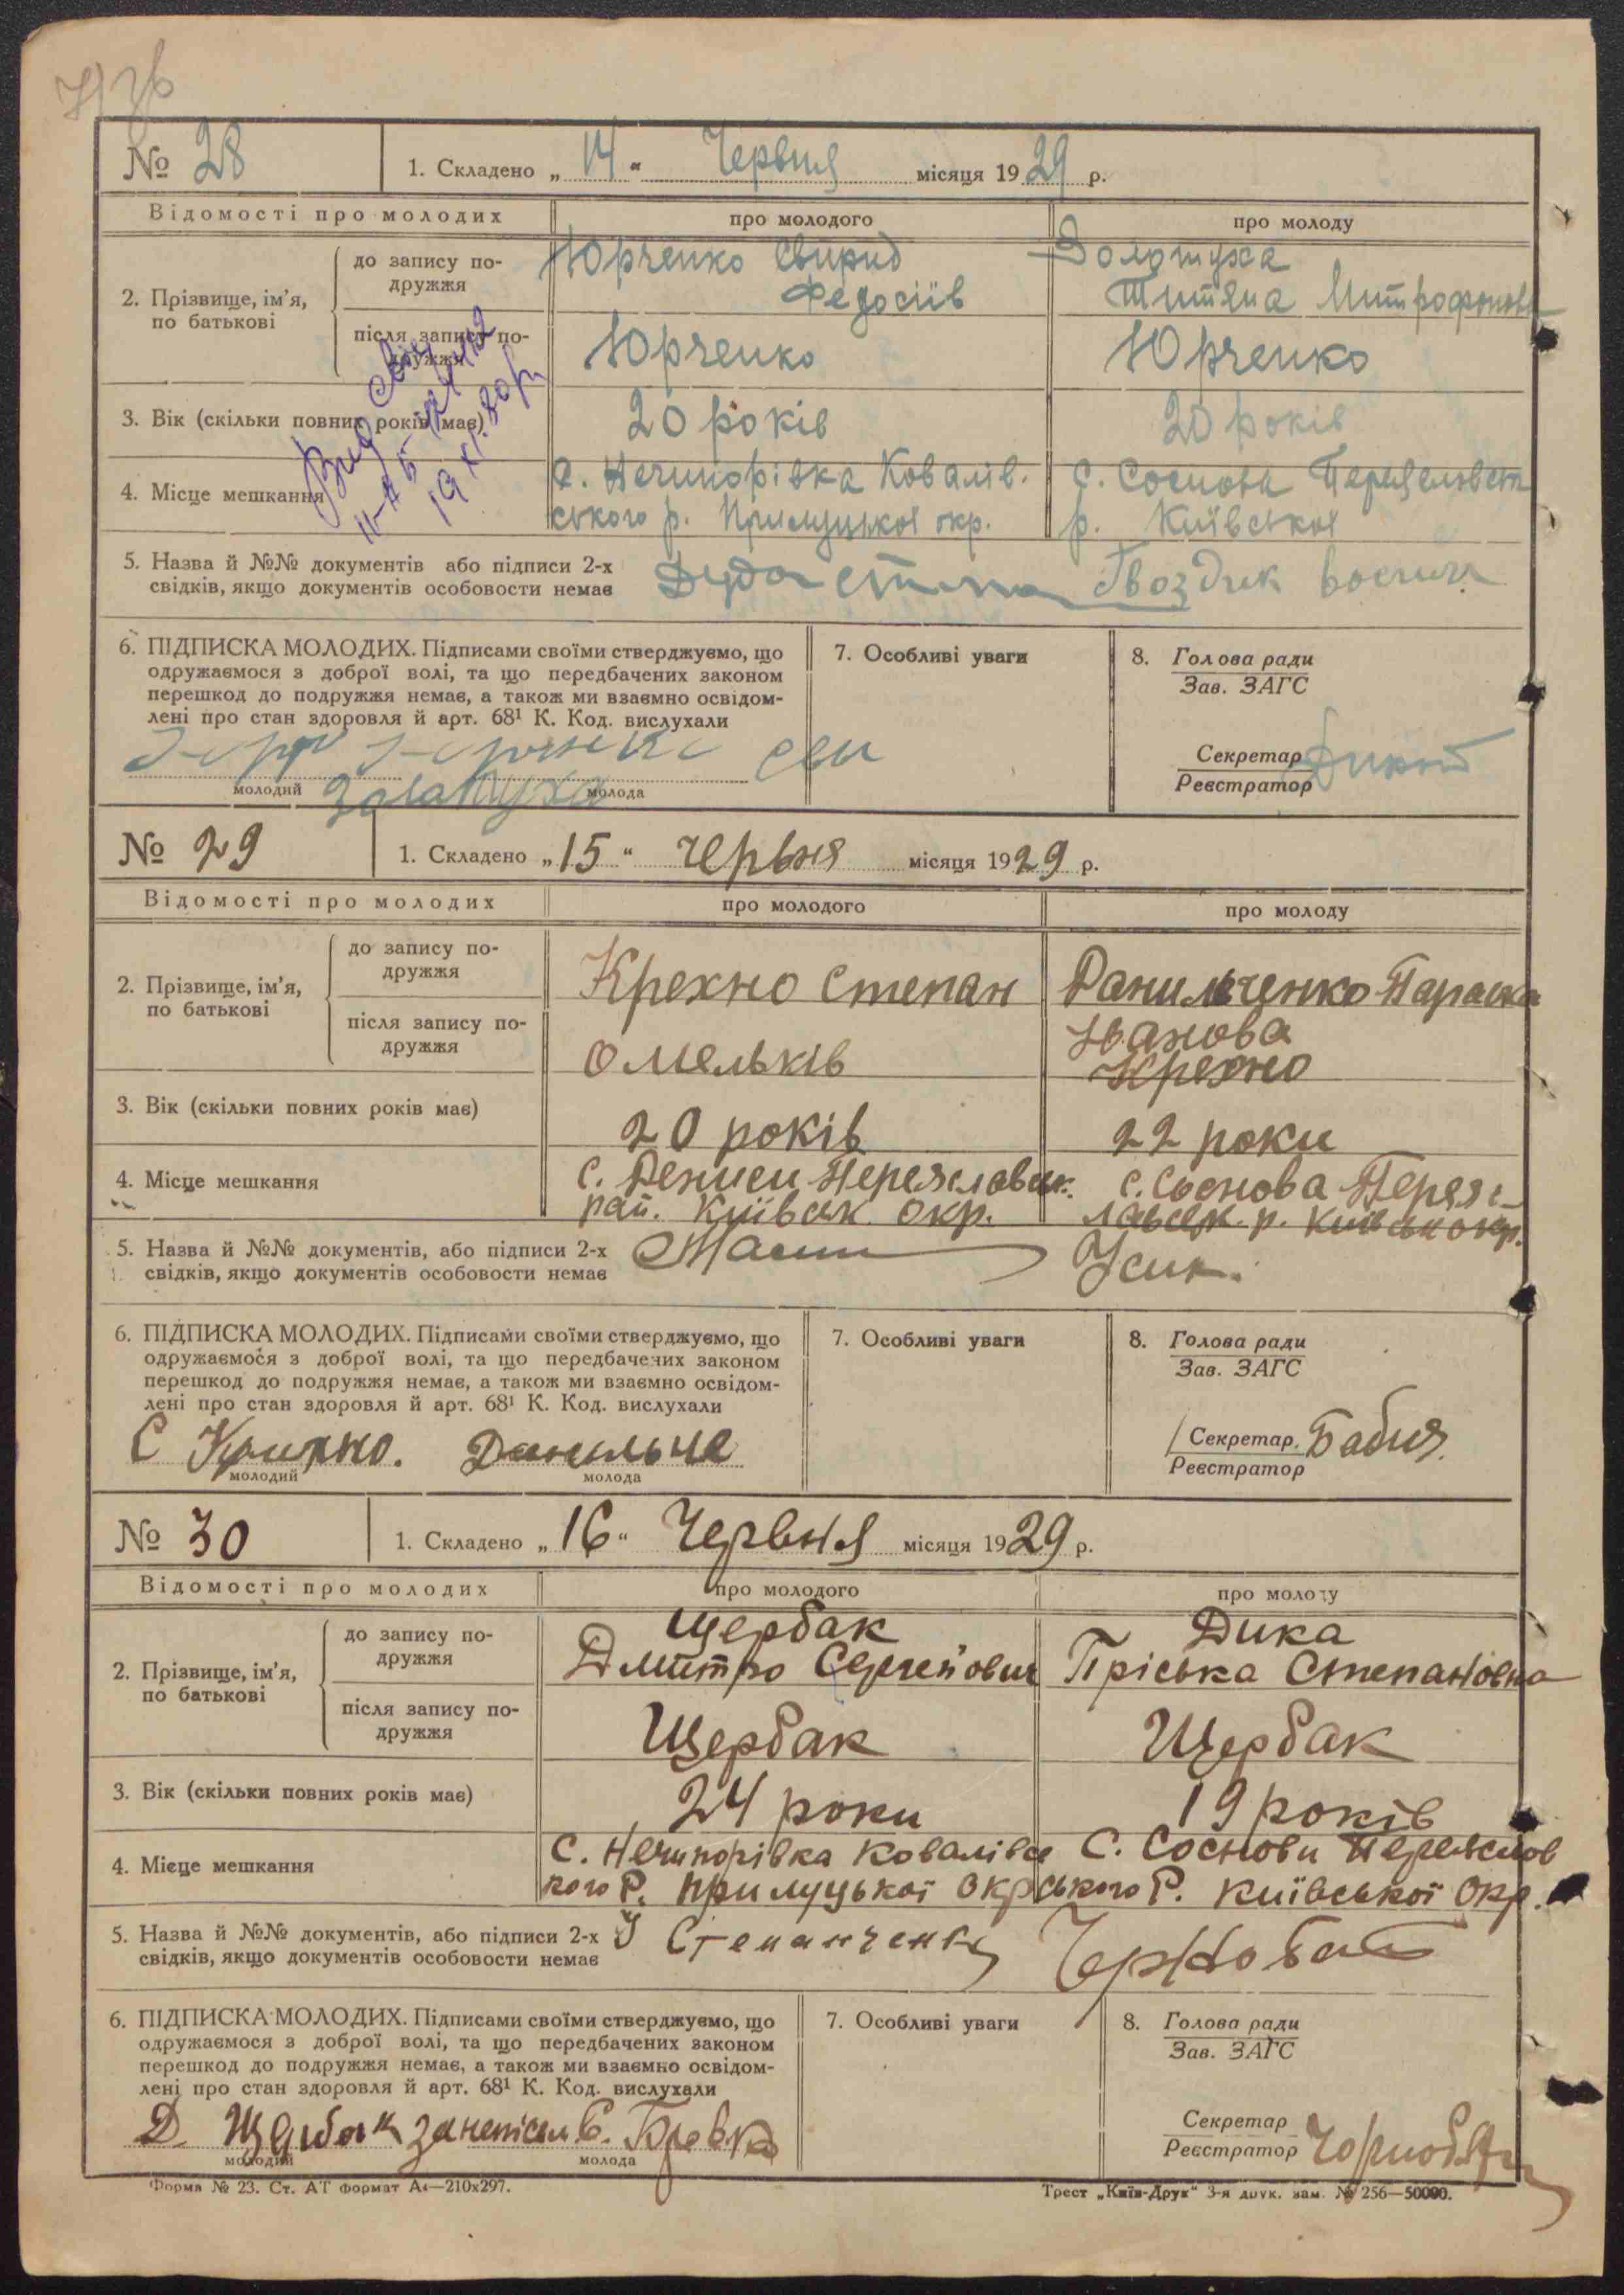 № 28 1. Складено „14“ Червня місяця 1929 р.
Відомості про молодих про молодого про молоду
2. Прізвище, ім’я, по батькові
до запису по-
дружжя
Юрченко Свирид
Федосіїв
Золотуха
Титяна Митрофонова
після запису по-
дружжя
Юрченко Юрченко
3. Вік (скільки повних років має) 20 років 20 років
4. Місце мешкання
с. Нечипорівка Ковалів-
ського р. Прилуцької окр.
с. Соснова
р. Київської
5. Назва й №№ документів або підписи 2-х
свідків, якщо документів особовости немає
Дуда Гвоздик
6. ПІДПИСКА МОЛОДИХ. Підписами своїми стверджуємо, що
одружаємося з доброї волі, та що передбачених законом
перешкод до подружжя немає, а також ми взаємно освідом-
лені про стан здоровля й арт. 68¹ К. Код. вислухали
молодий молода
Золотуха
7. Особливі уваги
8. Голова ради
Зав. ЗАГС
Секретар
Реєстратор
№ 29 1. Складено „15“ червня місяця 1929 р.
Відомості про молодих про молодого про молоду
2. Прізвище, ім’я,
по батькові
до запису по-
дружжя
Крехно Степан
Данильченко Параска
після запису по-
дружжя
Омельків
Іванова
Крехно
3. Вік (скільки повних років має) 20 років 22 роки
4. Місце мешкання
с. Дениси Переяславськ.
рай. Київськ окр.
с. Соснова Переяс-
лавськ. р. Київськ окр.
5. Назва й №№ документів, або підписи 2-х
свідків, якщо документів особовости немає
Усик.
6. ПІДПИСКА МОЛОДИХ. Підписами своїми стверджуємо, що
одружаємося з доброї волі, та що передбачених законом
перешкод до подружжя немає, а також ми взаємно освідом-
лені про стан здоровля й арт. 68¹ К. Код. вислухали
С Данильче
молодий молода
7. Особливі уваги
8. Голова ради
Зав. ЗАГС
Секретар Бабия
Реєстратор
№ 30 1. Складено „16“ Червня місяця 1929 р.
Відомості про молодих про молодого про молоду
2. Прізвище, ім’я,
по батькові
до запису по-
дружжя
Щербак
Дмитро Сергейович
Дика
Пріська Степановна
після запису по-
дружжя
Щербак Щербак
3. Вік (скільки повних років має) 24 роки 19 років
4. Місце мешкання
С. Нечипорівка Ковалівсь
кого Р. Прилуцької Окр
С. Соснови Переяслов
ського Р. Київської Окр.
5. Назва й №№ документів, або підписи 2-х
свідків, якщо документів особовости немає
Степанченко Чернобай
6. ПІДПИСКА МОЛОДИХ. Підписами своїми стверджуємо, що
одружаємося з доброї волі, та що передбачених законом
перешкод до подружжя немає, а також ми взаємно освідом-
лені про стан здоровля й арт. 68¹ К. Код. вислухали
Д. Щербак
молодий молода
7. Особливі уваги
8. Голова ради
Зав. ЗАГС
Секретар
Реєстратор
Форма № 23. Ст. АТ формат А4—210x297. Трест „Київ-Друк“ 3-я друк. зам. № 256—50000.